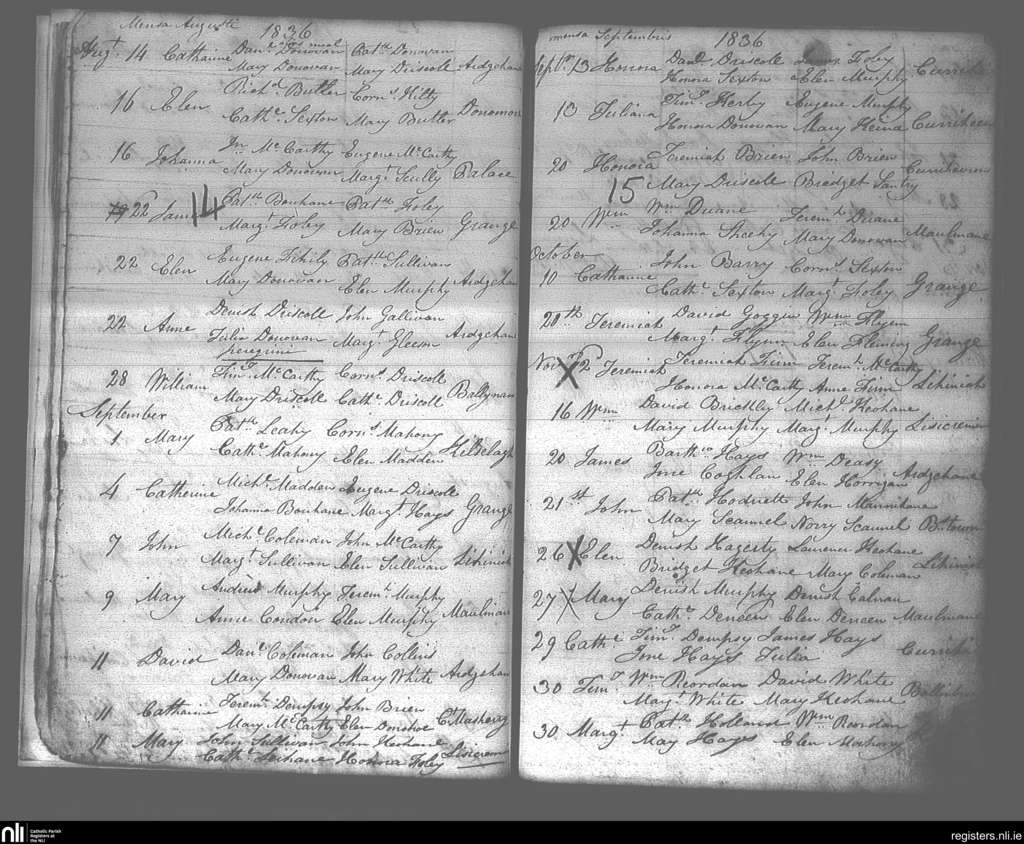 Mensa Augusti 1836
Augt. 14 Catharine Danl. Donovan Patk. Donovan
Mary Donovan Mary Driscoll Ardgehan
16 Elen Richd. Butler Corns.
Cathe. Sexton Mary Butler Donomore
16 Johanna Jno. McCarthy Eugene McCarthy
Mary Donovan Margt. Scully Palace
22 James Patk. Bouhane Patk. Foley
14
Margt. Foley Mary Brien Grange
22 Elen Eugene Fihily Patk. Sullivan
Mary Donovan Elen Murphy Ardgehan
22 Anne Denish Driscoll John Gallivan
Julia Donovan Margt. Gleeson Ardgehan
peregrini
28 William Timy. McCarthy Corns. Driscoll
Mary Driscoll Cathe. Driscoll Ballynam
September
1 Mary Patk. Leahy Corns. Mahony
Cathe. Mahony Elen Madden Kilbelagh
4 Catherine Michl. Madden Eugene Driscole
Johanna Bouhane Margt. Hays Grange
7 John Michl. Coleman John McCarthy
Margt. Sullivan Elen Sullivan Lihinish
9 Mary Andrew Murphy Jeremh. Murphy
Anne Condon Elen Murphy Maulmane
11 David Danl. Coleman John Collins
Mary Donovan Mary White Ardgehan
11 Catharine Jeremh. Dempsy John Brien
Mary McCarthy Elen Donohoe
11 Mary John Sullivan John Keohane
Cathe. Keohane Honora Foley Lisicrem
mensa Septembris 1836
Septbr. 13 Honora Danl. Driscole James Foley
Honora Sexton Elen Murphy Currihe
13 Juliana Timy. Herly Eugene Murphy
Honora Donovan Mary Curriheen
20 Honora Jeremiah Brien John Brien
15
Mary Driscole Bredget Santry Curriheven
20 Wm Wm Duane Jeremh. Duane
Johanna Sheehy Mary Donovan Maulmane
October
10 Catharine John Barry Corns. Sexton
Cathe. Sexton Margt. Foley Grange
20th Jeremiah David Goggin Wm Flynn
Margt. Flynn Elen Fleming Grange
Novr. 2 Jeremiah Jeremiah Finn Jeremh. McCarthy
Honora McCarthy Anne Finn Lihinish
16 Wm David Brickley Michl. Keohane
Mary Murphy Margt. Murphy Lisicremin
20 James Barthw Hays Wm Deasy
Jone Coghlan Elen Horrigan Ardgehane
21st John Patk. Hodnett John
Mary Scannel Norry Scannel
26 Elen Denish Hagerty Laurence Keohane
Bridget Keohane Mary Coleman Lihinish
27 Mary Denish Murphy Denish Calnan
Cathe. Deneen Elen Deneen Maulmane
29 Cathe Timy. Dempsy James Hays
Jone Hays Julia Currihe
30 Timy. Wm Reordan David White
Margt. White Mary Keohane
30 Margt. Patk. Holland Wm Reordan
May Hays Elen Mahony
nli
Catholic Parish
Registers at
the NLI
registers.nli.ie